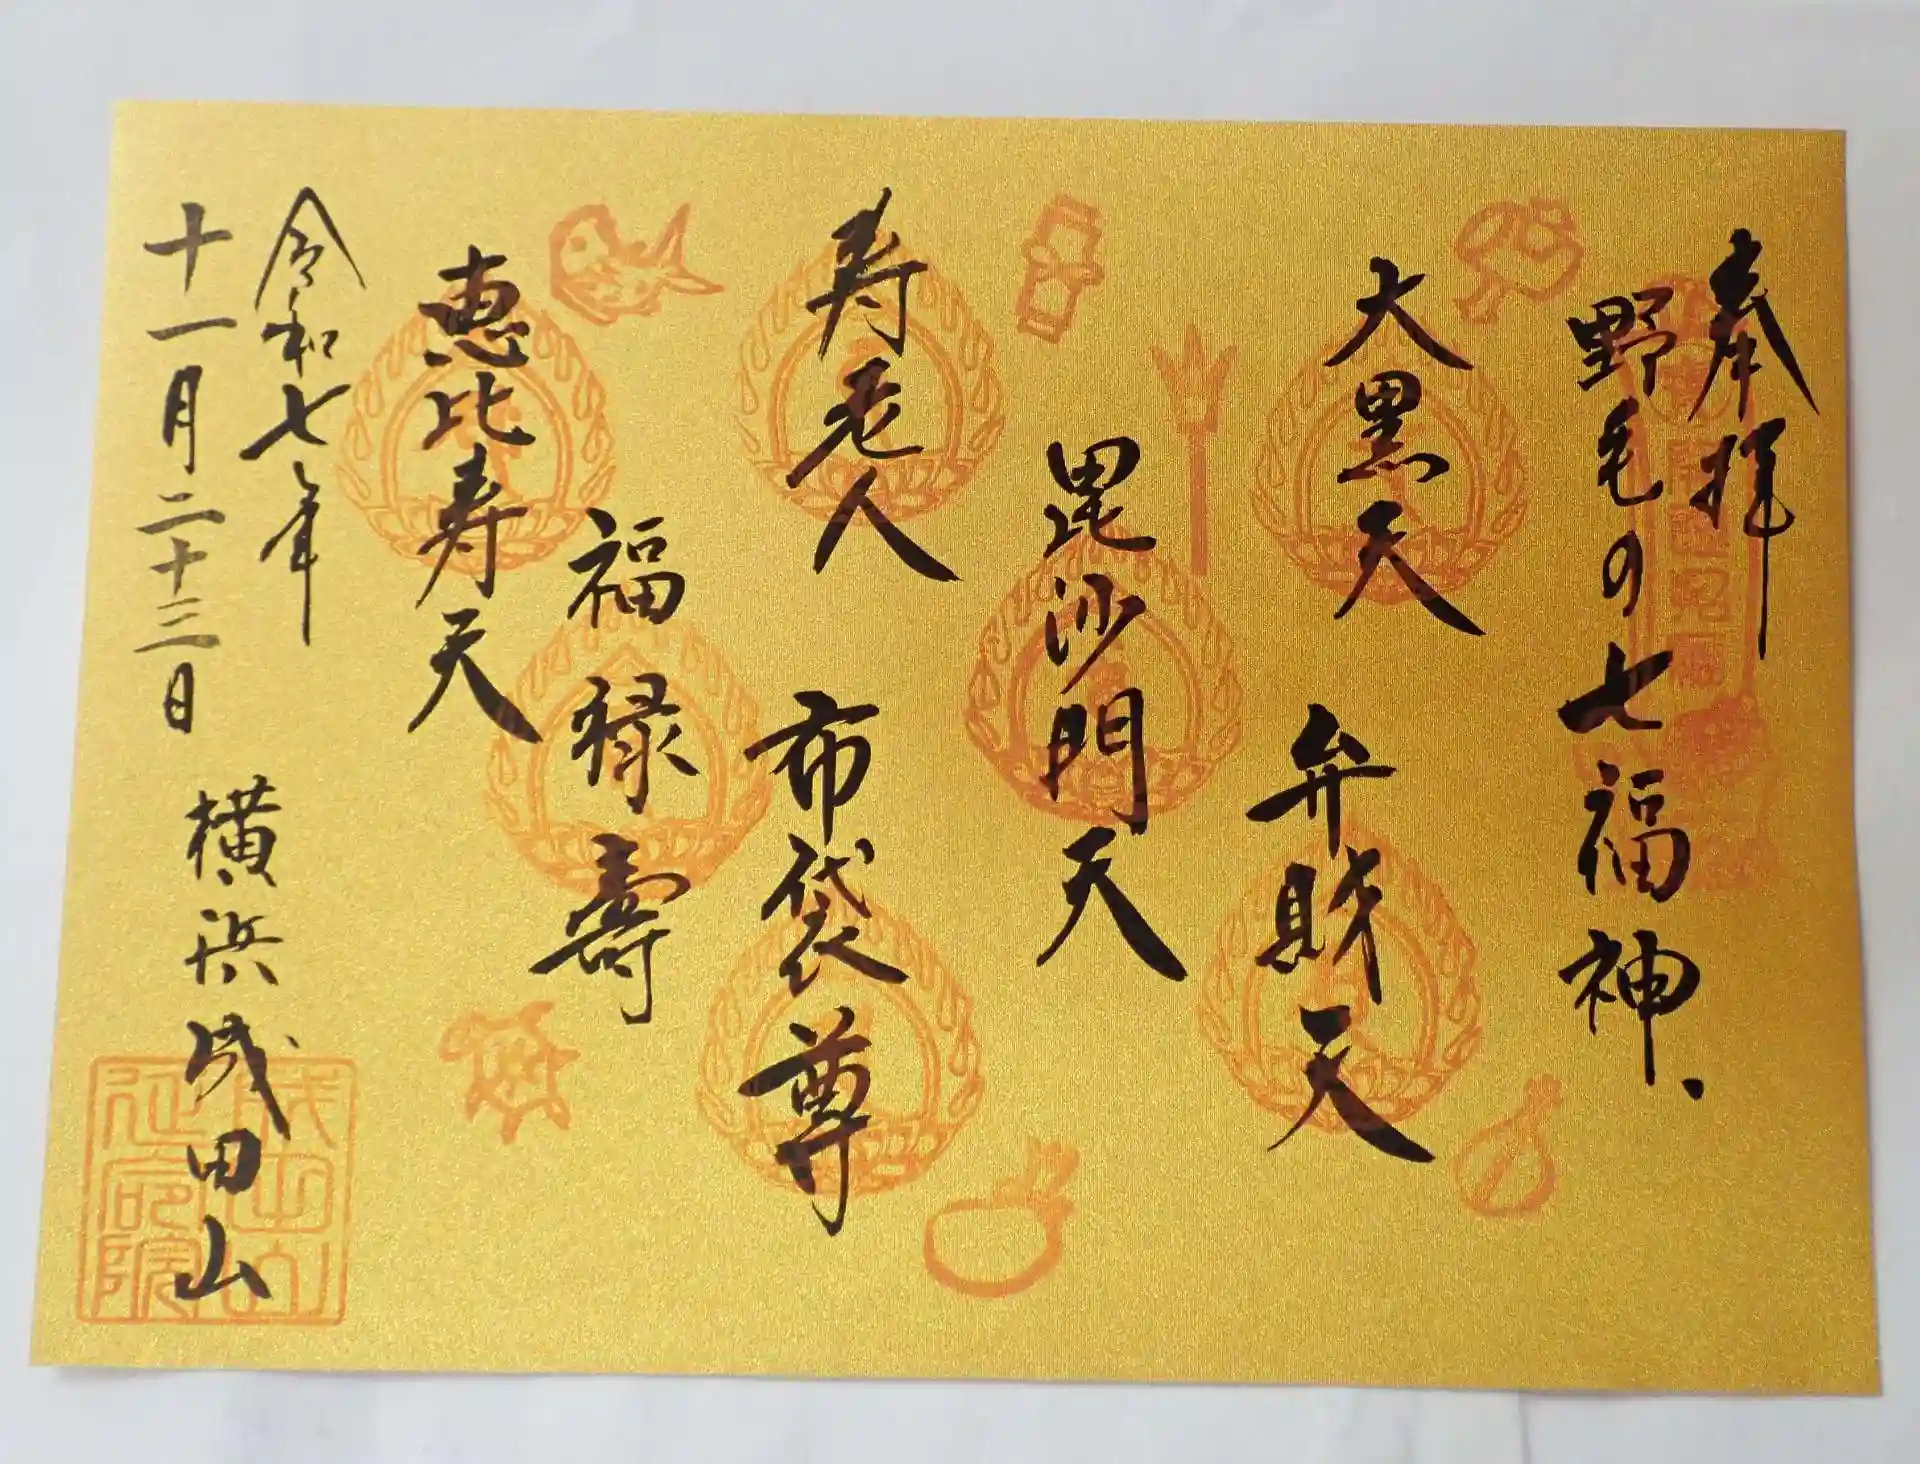 奉拝
野毛の七福神、
大黒天
弁財天
毘沙門天
寿老人
布袋尊
福禄寿
恵比寿天
令和七年
十一月二十三日
横浜成田山
成田山
延命院